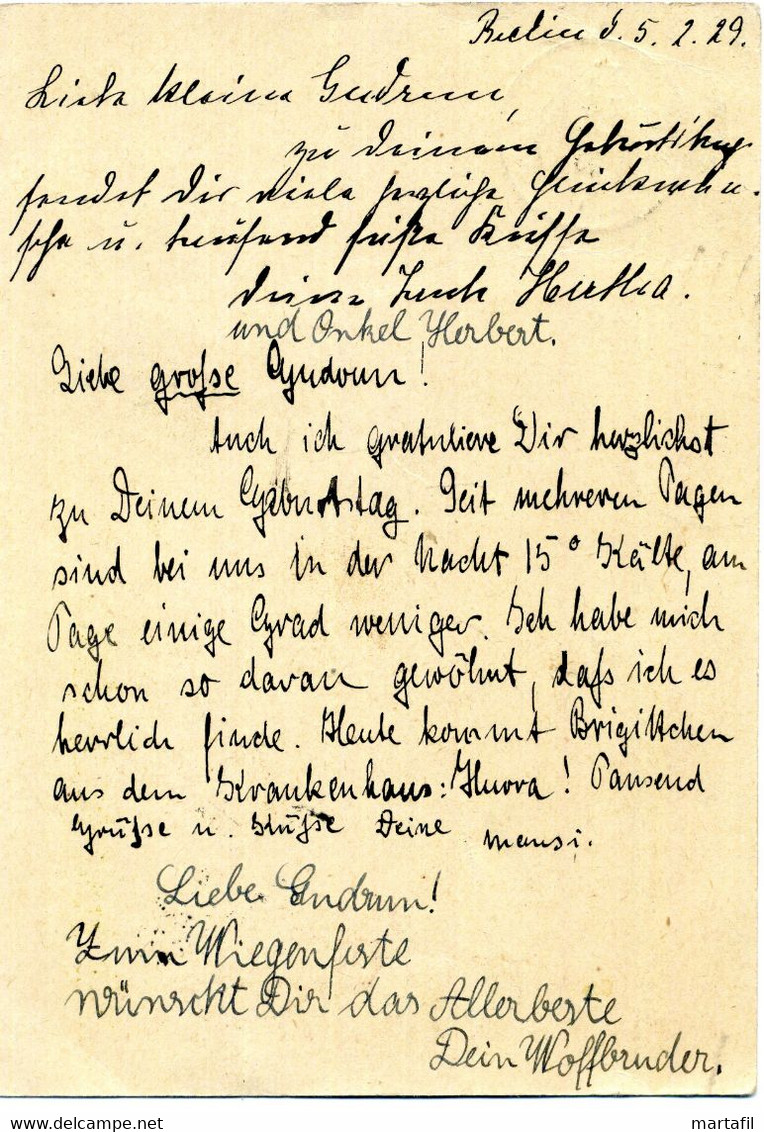 Berlin d. 5. 2. 29.
Liebe kleine Gudrun,
zu deinem Geburtstag
sendet dir viele herzliche Glückwün-
sche u. tausend süße Küsse
deine Tante Hertha.
und Onkel Herbert.
Liebe große Gudrun!
Auch ich gratuliere Dir herzlichst
zu Deinem Geburtstag. Seit mehreren Tagen
sind bei uns in der Nacht 15° Kälte, am
Tage einige Grad weniger. Ich habe mich
schon so daran gewöhnt, daß ich es
herrlich finde. Heute kommt Brigittchen
aus dem Krankenhaus: Hurra! Tausend
Grüße u. Küße Deine Mausi.
Liebe Gudrun!
Zum Wiegenfeste
wünscht Dir das Allerbeste
Dein Woffbruder.
martafil